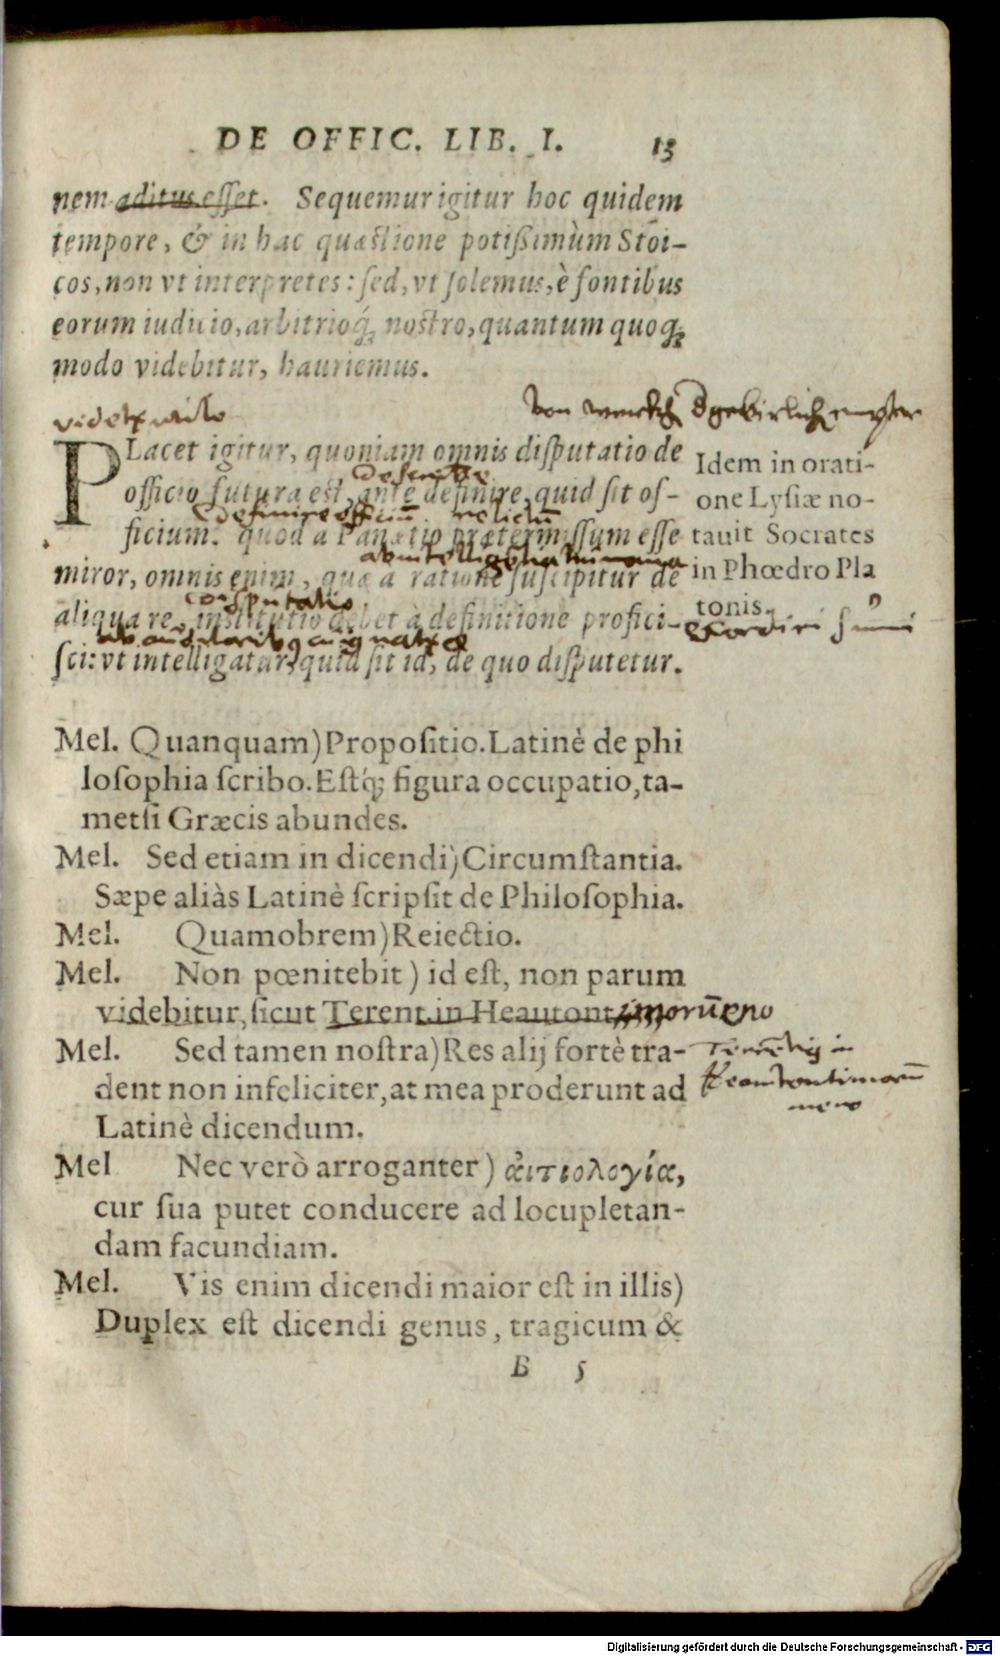 DE OFFIC. LIB. I. 13
nem aditus esset. Sequemur igitur hoc quidem
tempore, & in hac quæstione potißimùm Stoi-
cos, non vt interpretes: sed, vt solemus, è fontibus
eorum iudicio, arbitrioq́; nostro, quantum quoq;
modo videbitur, hauriemus.
videtr
von
PLacet igitur, quoniam omnis disputatio de
officio futura est, ante definire, quid sit of-
definire officiū relictū
ficium: quod à Panætio prætermissum esse
miror, omnis enim, quæ à ratione suscipitur de
disputatio
aliqua re, institutio debet à definitione profici-
ab auditoribus
sci: vt intelligatur, quid sit id, de quo disputetur.
Idem in orati-
one Lysiæ no-
tauit Socrates
in Phœdro Pla
tonis.
exordiri
Mel. Quanquam) Propositio. Latinè de phi
losophia scribo. Estq́; figura occupatio, ta-
metsi Græcis abundes.
Mel. Sed etiam in dicendi) Circumstantia.
Sæpe aliàs Latinè scripsit de Philosophia.
Mel. Quamobrem) Reiectio.
Mel. Non pœnitebit) id est, non parum
videbitur, sicut Terent. in Heautont imorūeno
Mel. Sed tamen nostra) Res alij fortè tra-
dent non infeliciter, at mea proderunt ad
Latinè dicendum.
Terētiq in
Heautontimorū
meno
Mel Nec verò arroganter) αἰτιολογία,
cur sua putet conducere ad locupletan-
dam facundiam.
Mel. Vis enim dicendi maior est in illis)
Duplex est dicendi genus, tragicum &
B 5
Digitalisierung gefördert durch die Deutsche Forschungsgemeinschaft - DFG